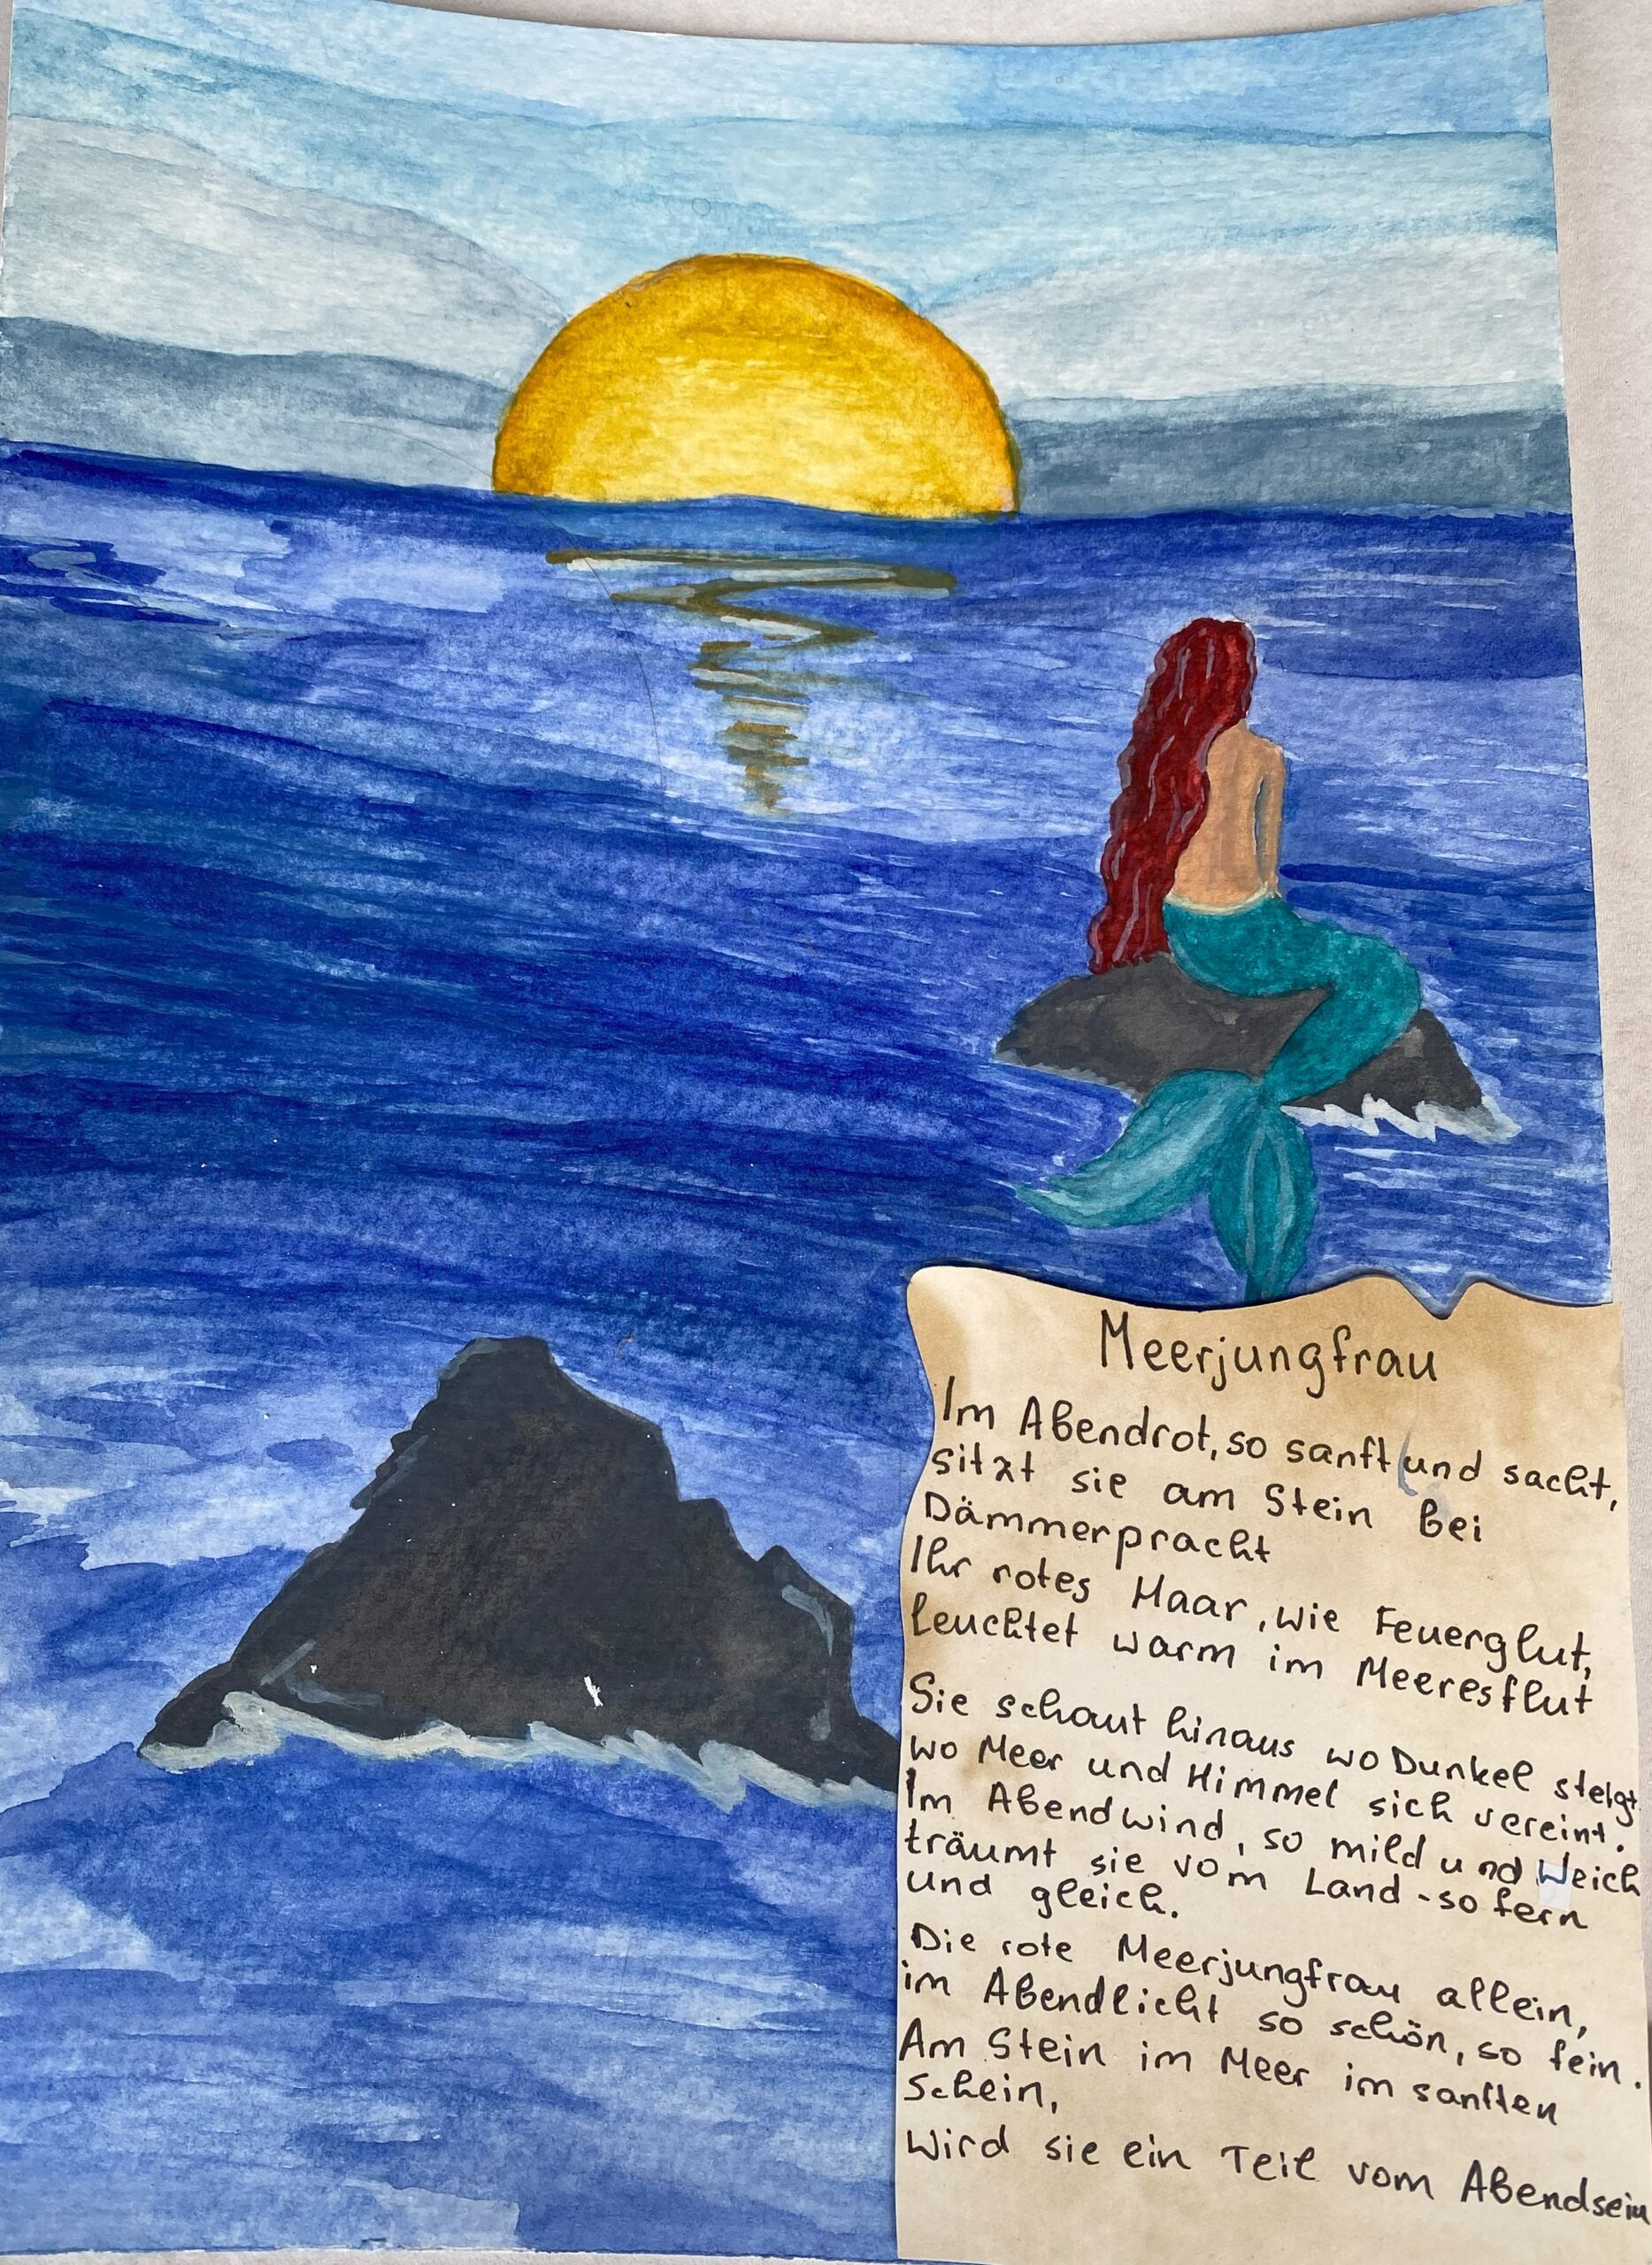 Meerjungfrau
Im Abendrot, so sanft und sacht,
sitzt sie am Stein bei
Dämmerpracht
Ihr rotes Haar, wie Feuerglut,
leuchtet warm im Meeresflut
Sie schaut hinaus wo Dunkel steigt
wo Meer und Himmel sich vereint.
Im Abendwind, so mild und Weich
träumt sie vom Land - so fern
und gleich.
Die rote Meerjungfrau allein,
im Abendlicht so schön, so fein.
Am Stein im Meer im sanften
Schein,
Wird sie ein Teil vom Abendsein